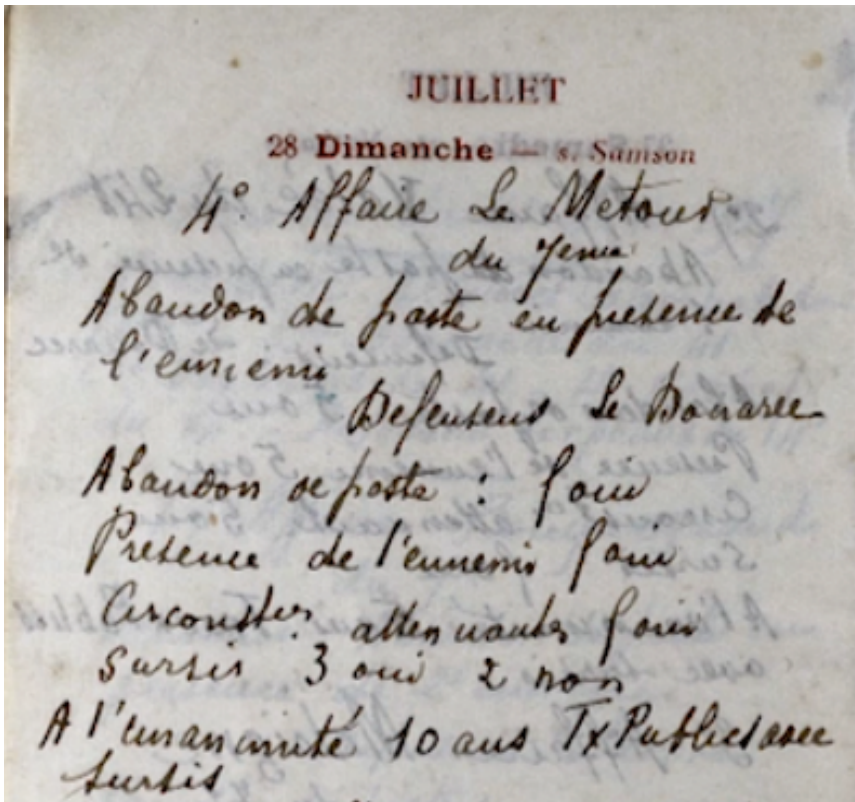 JUILLET
28 Dimanche — s. Samson
4° Affaire Le Metour
du 7eme
Abandon de poste en presence de
l'ennemi
Defenseur Le Bonarec
Abandon de poste : 5 oui
Presence de l'ennemi 5 oui
Circonstces attenuantes 5 oui
Sursis 3 oui 2 non
A l'unanimité 10 ans Tx Publics avec
sursis